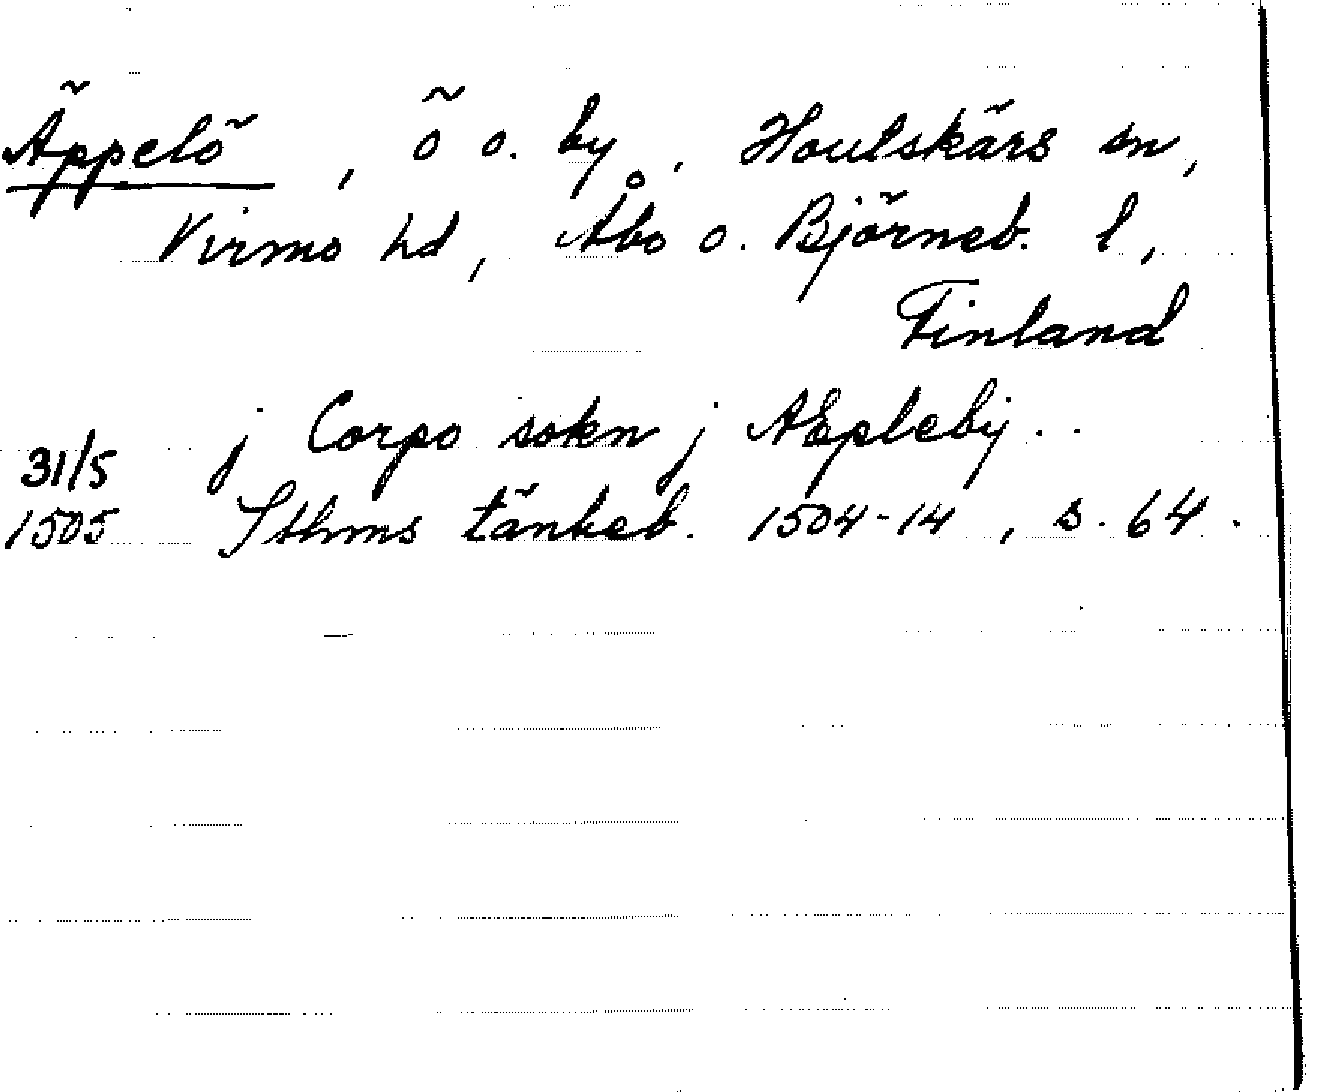 Äppelö, ö o. by, Houlskärs sn,
Virmo hd, Åbo o. Björneb. l,
Finland
31/5 j Corpo sokn j AEpleby..
1505 Sthms tänkeb. 1504-14, s. 64.